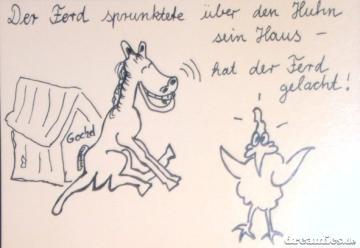 Der Ferd sprunktete über den Huhn
sein Haus –
hat der Ferd
gelacht!
dreamies.de